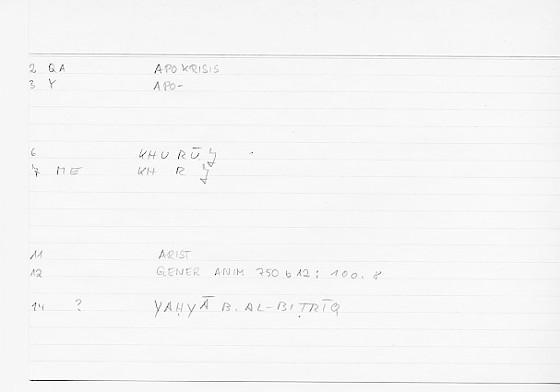 2 QA APOKRISIS
3 Y APO-
6 KHURŪǦ
7 ME KH R Ǧ
11 ARIST
12 GENER ANIM 750 b 12 : 100.8
14 ? YAḤYĀ B. AL-BIṬRĪQ